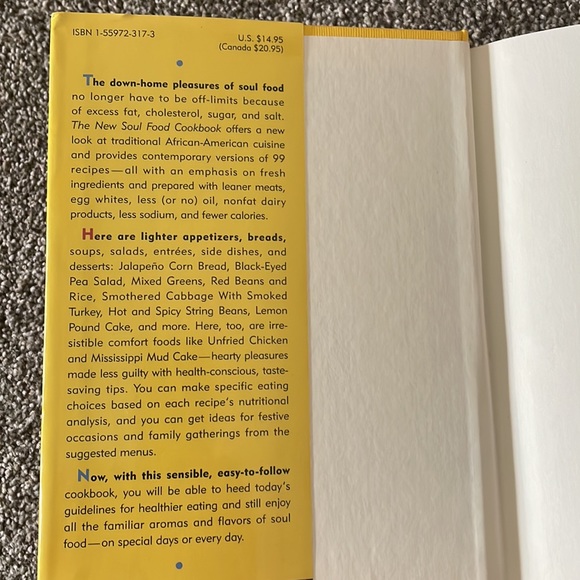 ISBN 1-55972-317-3
U.S. $14.95
(Canada $20.95)
The down-home pleasures of soul food
no longer have to be off-limits because
of excess fat, cholesterol, sugar, and salt.
The New Soul Food Cookbook offers a new
look at traditional African-American cuisine
and provides contemporary versions of 99
recipes—all with an emphasis on fresh
ingredients and prepared with leaner meats,
egg whites, less (or no) oil, nonfat dairy
products, less sodium, and fewer calories.
Here are lighter appetizers, breads,
soups, salads, entrées, side dishes, and
desserts: Jalapeño Corn Bread, Black-Eyed
Pea Salad, Mixed Greens, Red Beans and
Rice, Smothered Cabbage With Smoked
Turkey, Hot and Spicy String Beans, Lemon
Pound Cake, and more. Here, too, are irre-
sistible comfort foods like Unfried Chicken
and Mississippi Mud Cake—hearty pleasures
made less guilty with health-conscious, taste-
saving tips. You can make specific eating
choices based on each recipe's nutritional
analysis, and you can get ideas for festive
occasions and family gatherings from the
suggested menus.
Now, with this sensible, easy-to-follow
cookbook, you will be able to heed today's
guidelines for healthier eating and still enjoy
all the familiar aromas and flavors of soul
food—on special days or every day.